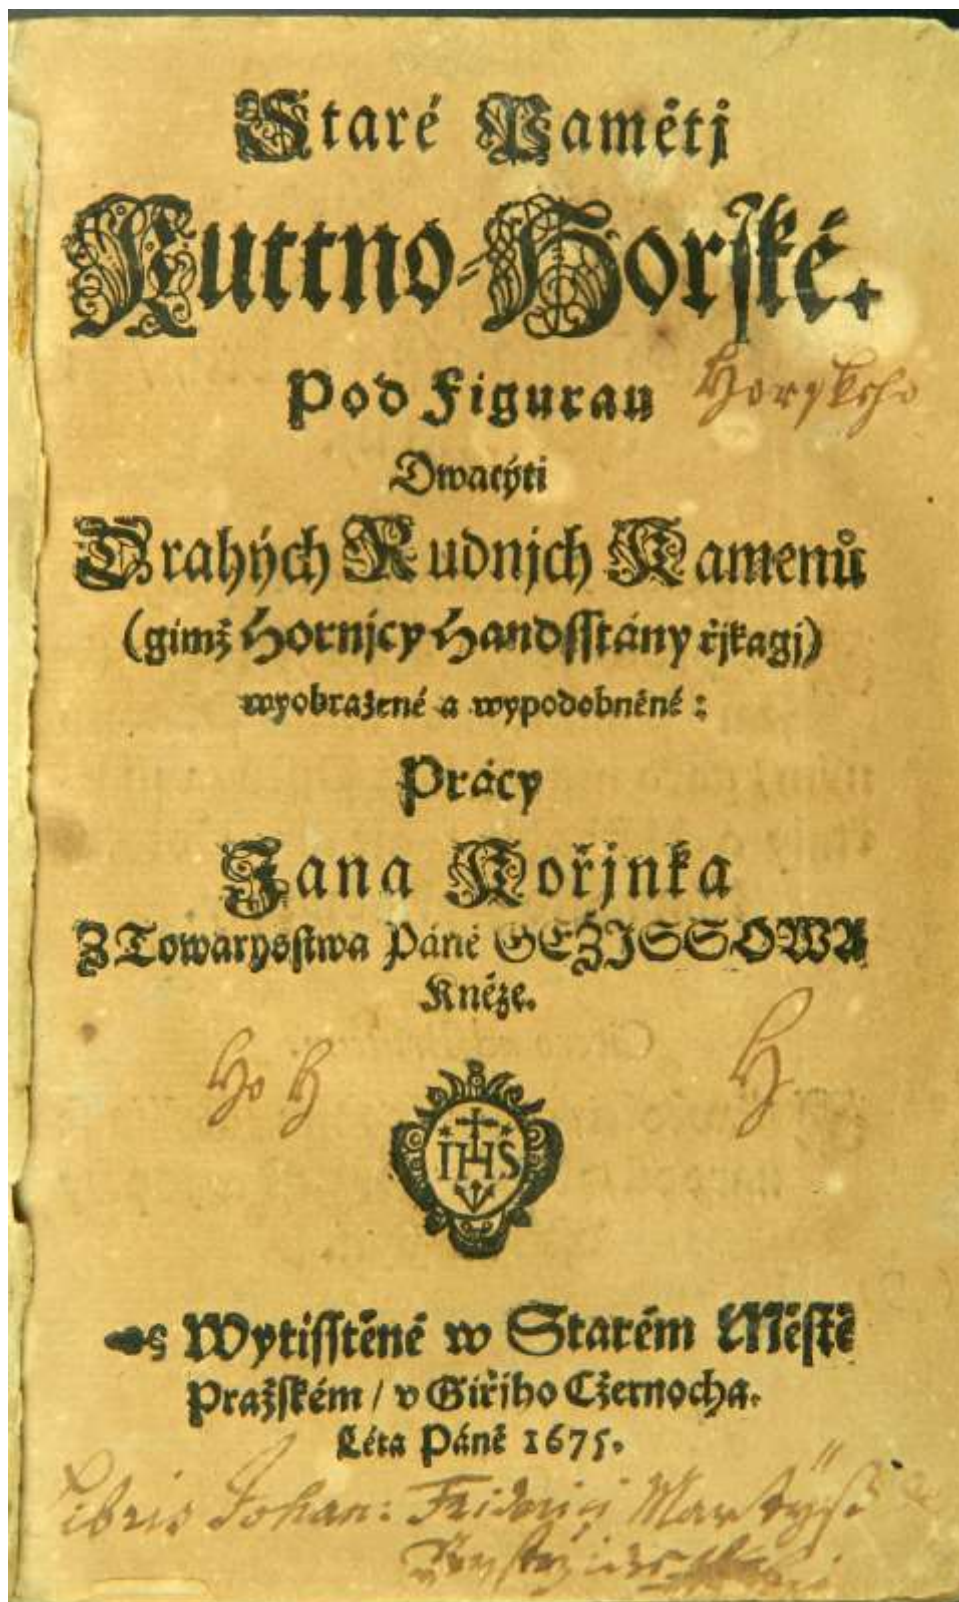 Staré Pamětj
Kuttno-Horské.
Pod Figurau
Dwacýti
Drahých Rudnjch Kamenů
(gimž Hornjcy Handsstány řjkagj)
wyobrazené a wypodobněné:
Prácy
Jana Kořjnka
Z Towarysstwa Páně GEŽISSOWA
Kněze.
Ho H H
IHS
Wytisstěné w Starém Městě
Pražském / v Giřiho Cžernocha.
Léta Páně 1675.
Johan: Friderici